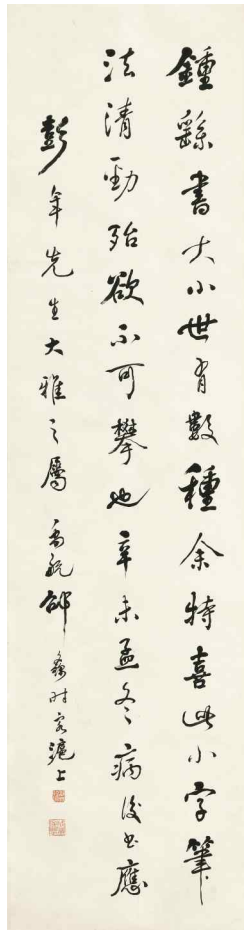 鍾繇書大小世有數種余特喜此小字筆
法清勁殆欲不可攀也辛未孟冬病後書應
彭年先生大雅之屬 高凱邠 時客滬上